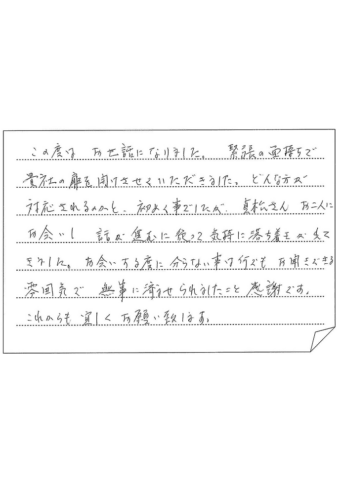 この度は お世話になりました。 緊張の面持ちで
貴社の扉を開けさせていただきました。どんな方が
対応されるのかと、初めは事でしたが、貞松さん お二人に
お会いし 話が進むに従って気持に落ち着きが出て
きました。お会いする度に分らない事は何でも お聞きできる
雰囲気で 無事に済ませられましたこと 感謝です。
これからも 宜しく お願い致します。